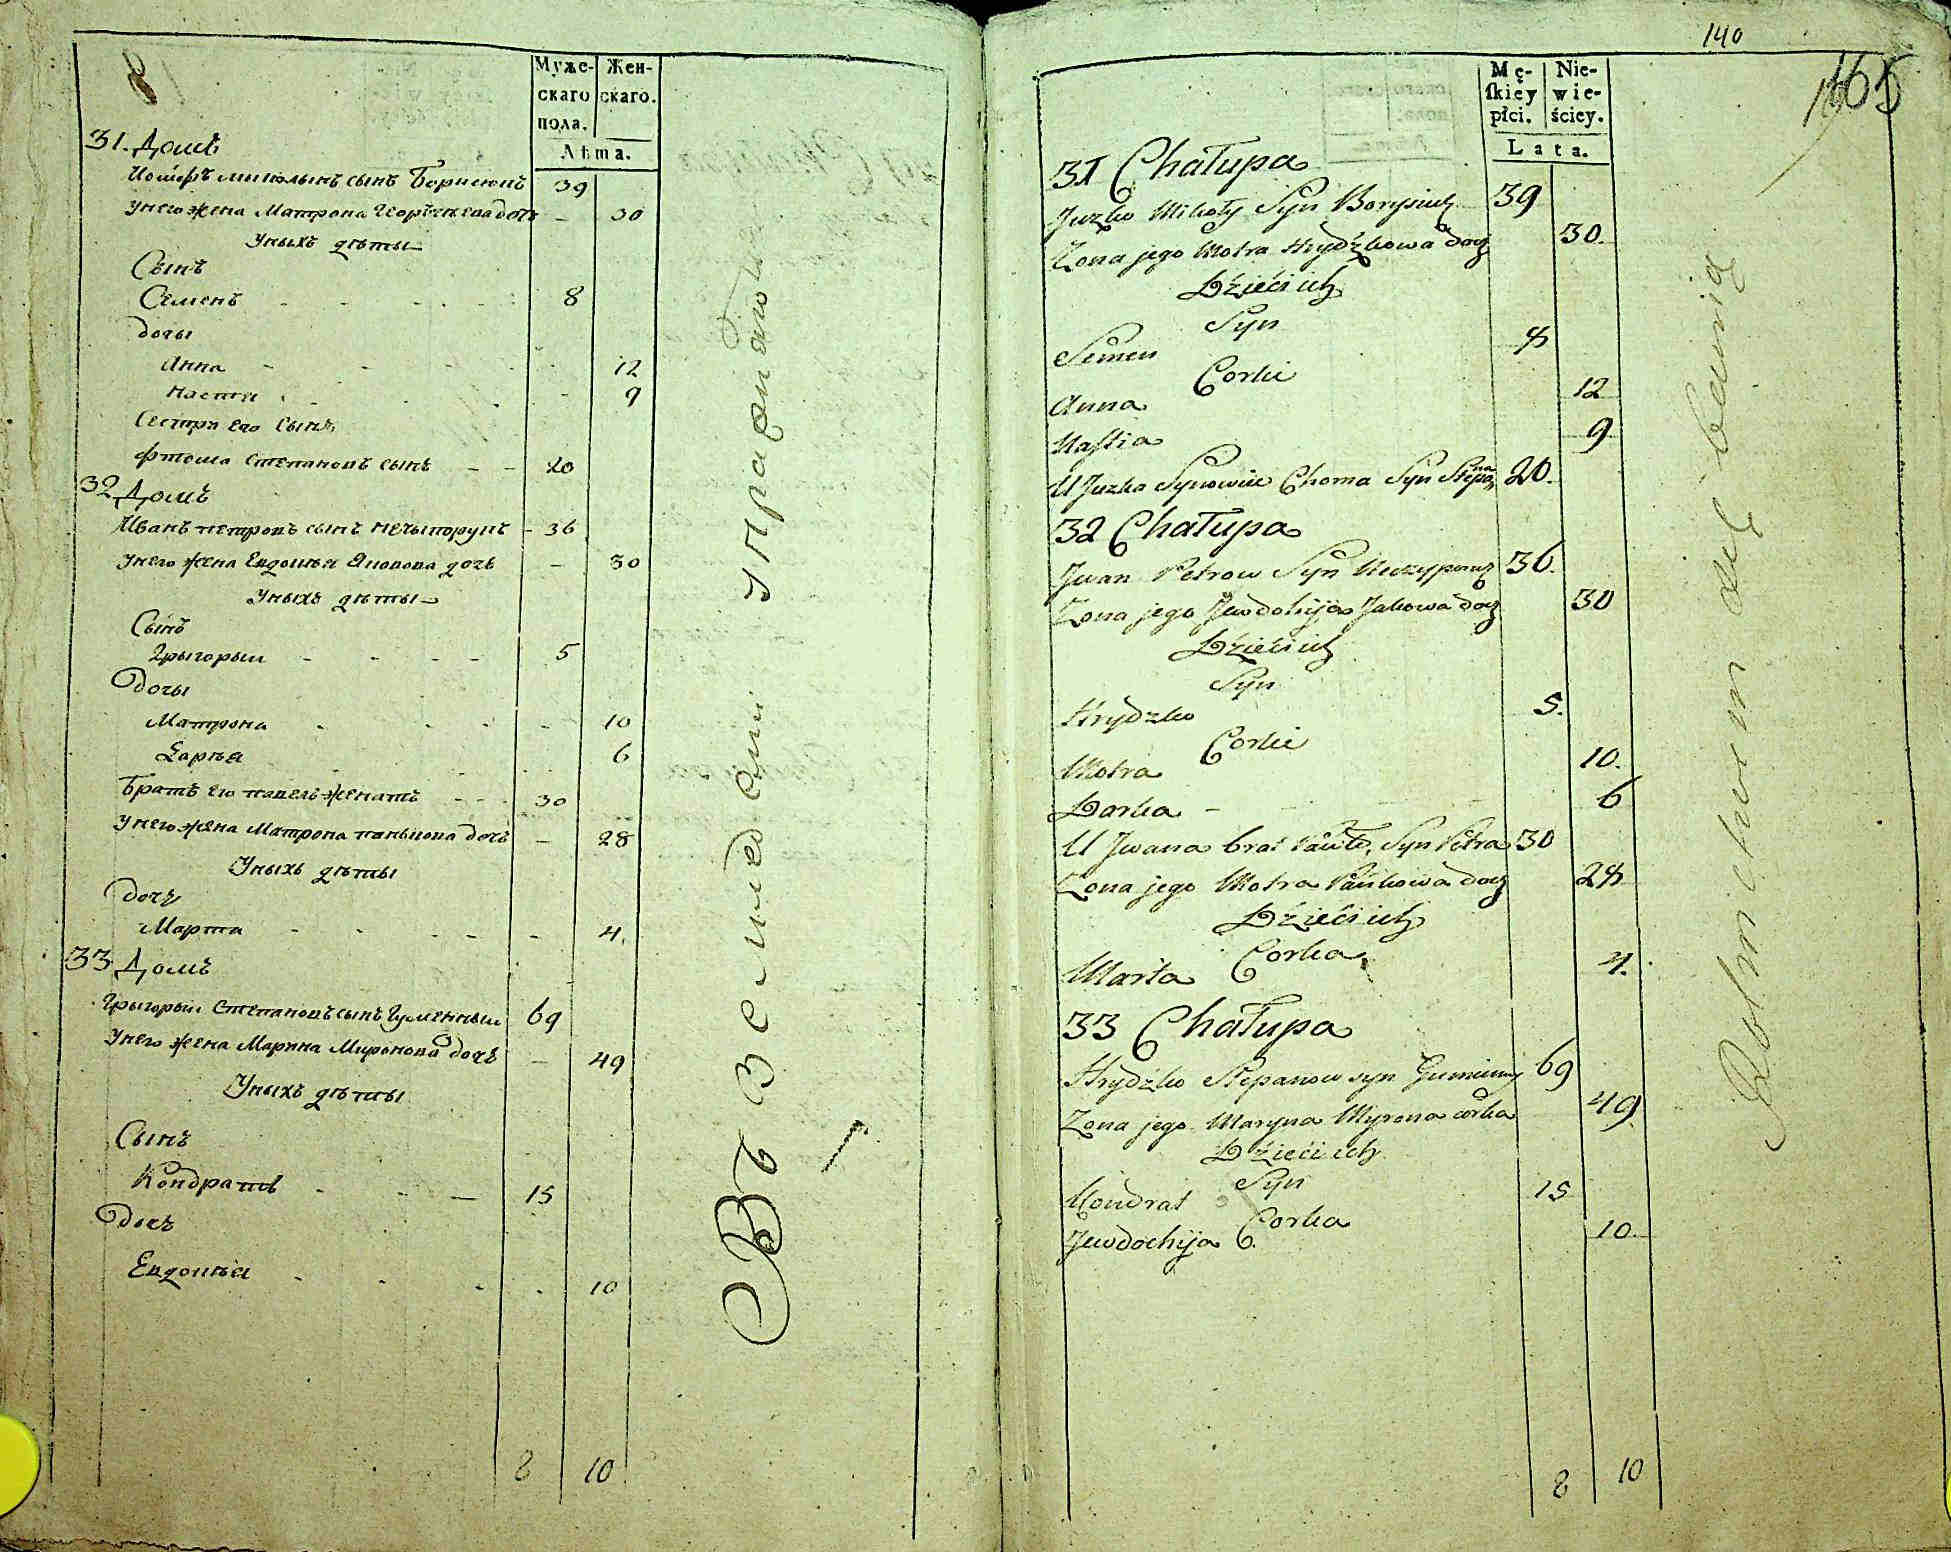 Муже-
скаго
пола.
Жен-
скаго.
Лѣта.
31. Домъ
Иосифъ Миколынъ сынъ Борисюкъ 39
У него жена Матрона дочь – 30
У ныхъ дѣты
Сынъ
Семенъ - - - - 8
дочы
Анна - - - - 12
Настя - - - 9
Сестры его сынъ
Фтома Степановъ сынъ - - 20
32 Домъ
Иванъ Петровъ сынъ Нечыпорукъ - 36
У него жена Евдокыя Яковова дочь – 30
У ныхъ дѣты
Сынъ
Грыгорый - - - - 5
Дочы
Матрона - - - - 10
Дарыя - - - - 6
Братъ его Павелъ женатъ - - - 30
У него жена Матрона Панькова дочь – 28
У ныхъ дѣты
Дочъ
Марта - - - - - 4.
33 Домъ
Грыгорый Степановъ сынъ Гуменный 69
У него жена Марина Миронова дочь – 49
У ныхъ дѣты
Сынъ
Кондратъ - - — 15
Дочъ
Евдокыя - - - - 10
8 10
Въ земледелии
140
165
Mę-
skiey
płci.
Nie-
wie-
ściey.
Lata.
31 Chałupa
Juzko Mikoły Syn Borysiuk 39
Zona jego Motra Hrydźkowa docz 30.
Dzieci ich
Syn
Semen 8
Corki
Anna 12
Nastia 9
U Juzka Synowiec Choma Syn Stepana 20.
32 Chałupa
Jwan Petrow Syn Neczyporuk 36.
Zona jego Jewdokija Jakowa docz 30
Dzieci ich
Syn
Hrydzko 5.
Corki
Motra 10.
Darka - 6
U Jwana brat Pawło, Syn Petra 30
Zona jego Motra Pańkowa docz 28
Dzieci ich
Corka
Marta 4.
33 Chałupa
Hrydźko Stepanow syn Gumienny 69
Zona jego Maryna Myrona corka 49.
Dzieci ich
Syn
Kondrat 15
Corka
Jewdochija 10.
8 10